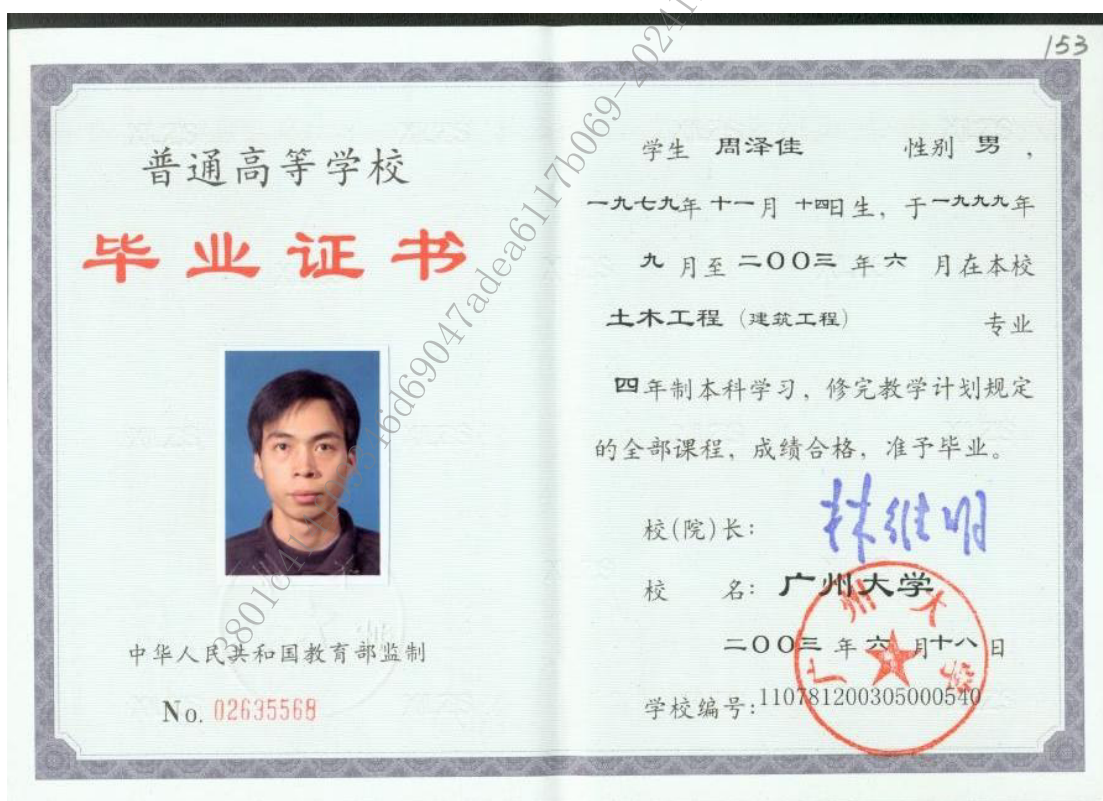 153
普通高等学校
毕业证书
中华人民共和国教育部监制
No. 02635568
学生 周泽佳 性别 男 ,
一九七九年 十一月 十四日生, 于一九九九年
九 月至 二〇〇三 年 六 月在本校
土木工程 (建筑工程) 专业
四年制本科学习, 修完教学计划规定
的全部课程, 成绩合格, 准予毕业。
校(院)长: 林维明
校 名: 广州大学
二〇〇三 年 六 月十八日
学校编号:110781200305000540
广州大学